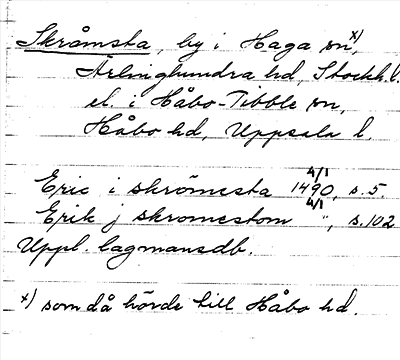 Skråmsta, by i Haga sn x),
Ärlinghundra hd, Stockh. l.
el. i Håbo-Tibble sn,
Håbo hd, Uppsala l.
Eric i skrömesta 1490 4/1, s. 5.
Erik j skromestom " 4/1, s. 102
Uppl. lagmansdb.
x) som då hörde till Håbo hd.